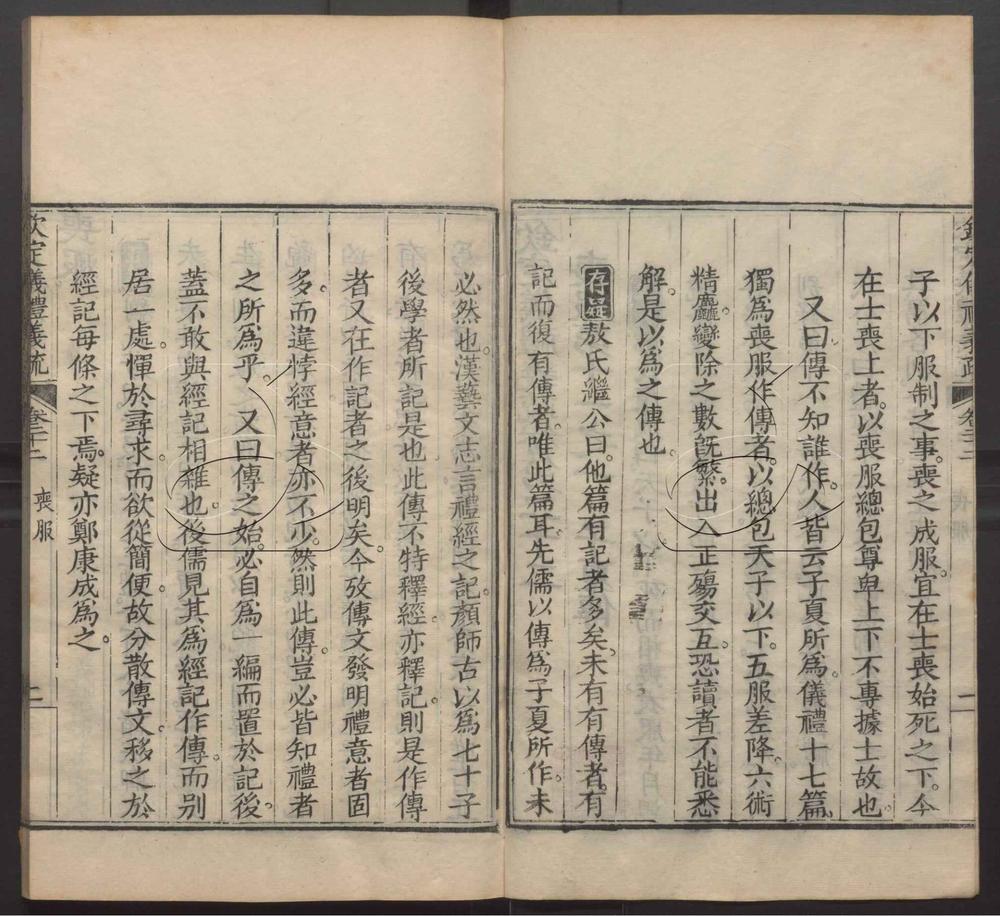 子以下服制之事。喪之成服。宜在士喪始死之下。今
在士喪上者。以喪服總包尊卑上下。不專據士故也。
又曰。傳不知誰作。人皆云子夏所爲。儀禮十七篇。
獨爲喪服作傳者。以總包天子以下。五服差降。六術
精麤。變除之數旣繁。出入正殤交互。恐讀者不能悉
解。是以爲之傳也。
存疑敖氏繼公曰。他篇有記者多矣。未有有傳者。有
記而復有傳者。唯此篇耳。先儒以傳爲子夏所作。未
必然也。漢藝文志言禮經之記。顏師古以爲七十子
後學者所記是也。此傳不特釋經。亦釋記。則是作傳
者又在作記者之後明矣。今攷傳文發明禮意者固
多。而違悖經意者亦不少。然則此傳。豈必皆知禮者
之所爲乎。 又曰。傳之始。必自爲一編而置於記後。
蓋不敢與經記相雜也。後儒見其爲經記作傳。而別
居一處。憚於尋求。而欲從簡便。故分散傳文。移之於
經記每條之下焉。疑亦鄭康成爲之。
欽定儀禮義疏 卷二十二 喪服 二